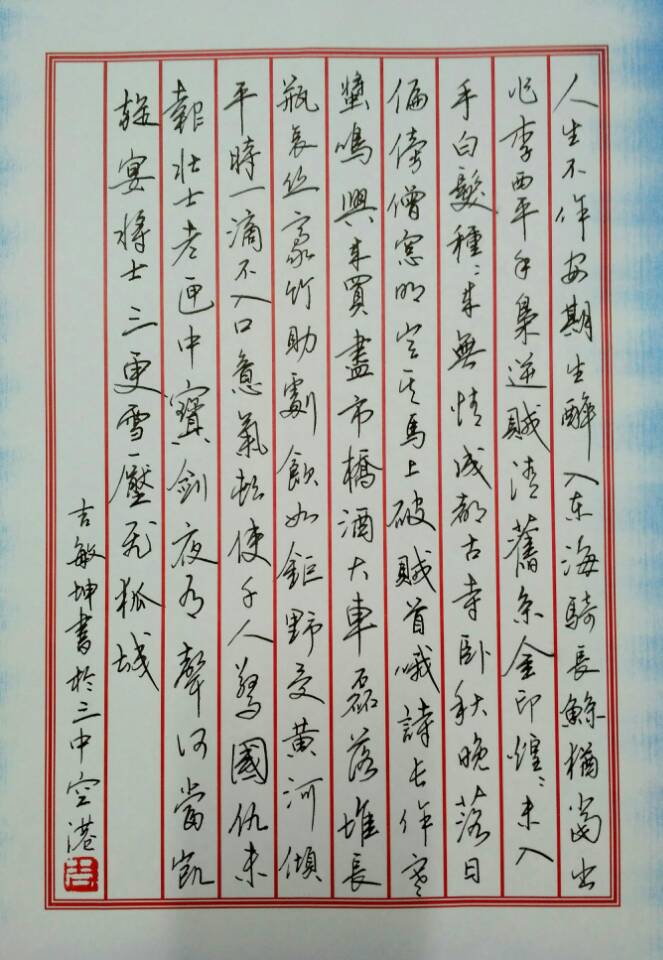 人生不作安期生醉入东海騎長鯨猶當出
作李西平手梟逆賊清舊京金印煌〻未入
手白髮種〻来無情成都古寺卧秋晚落日
偏傍僧窓明豈其馬上破賊首哦詩長作寒
螿鳴興来買盡市橋酒大車磊落堆長
瓶哀丝豪竹助劇飲如鉅野受黄河傾
平時一滴不入口意氣頓使千人驚國仇未
報壯士老匣中寶劍夜有聲何當凱
旋宴將士三更雪壓飛狐城
吉敏坤書於三中空港
吉